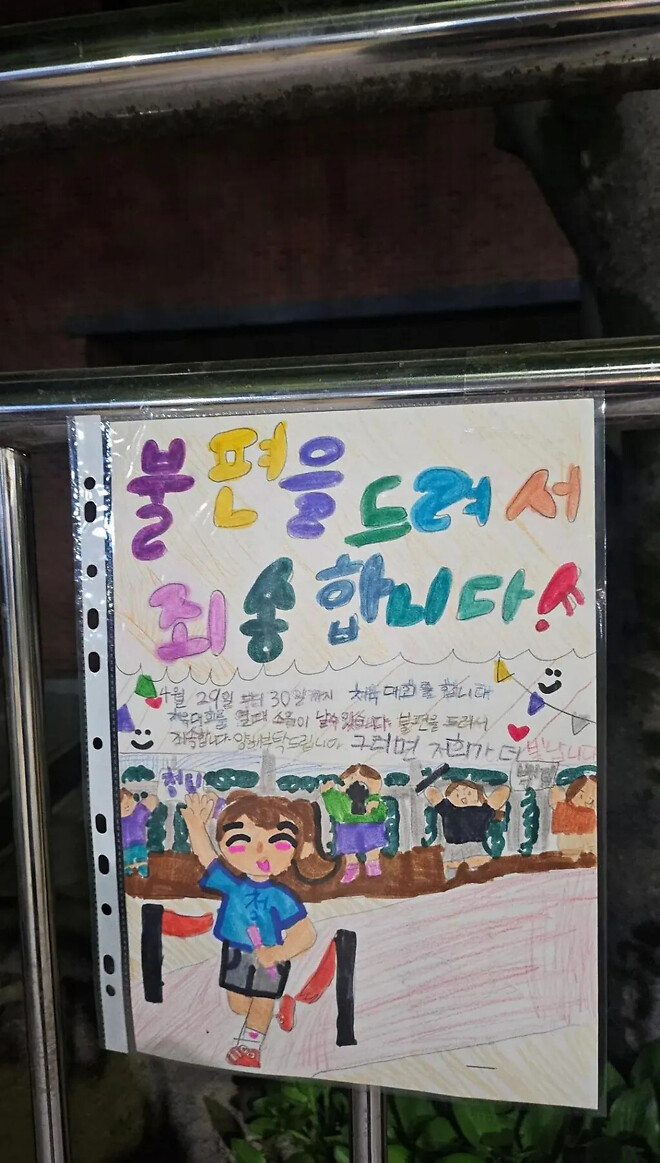 불편을 드려서
죄송합니다!
4월 29일 부터 30일까지 체육대회를 합니다
체육대회를 열때 소음이 날수있습니다. 불편을 드려서
죄송합니다 양해부탁드립니다 그러면 저희가 더 빛납니다
청팀
백팀
청